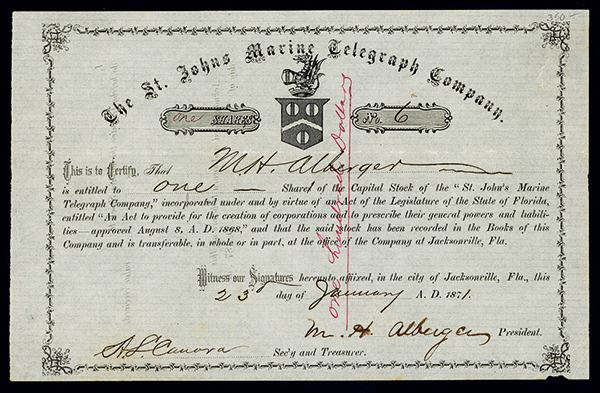 350-
The St. Johns Marine Telegraph Company.
one SHARES No. 6
This is to Certify, That M. H. Alberger
is entitled to one Shares of the Capital Stock of the "St. John's Marine
Telegraph Company," incorporated under and by virtue of an Act of the Legislature of the State of Florida,
entitled "An Act to provide for the creation of corporations and to prescribe their general powers and liabili-
ties—approved August 8, A. D. 1868," and that the said stock has been recorded in the Books of this
Company and is transferable, in whole or in part, at the office of the Company at Jacksonville, Fla.
one hundred Dollars
Witness our Signatures hereunto affixed, in the city of Jacksonville, Fla., this
23 day of January A. D. 1871.
M. H. Alberger President.
A. L. Canova Sec'y and Treasurer.